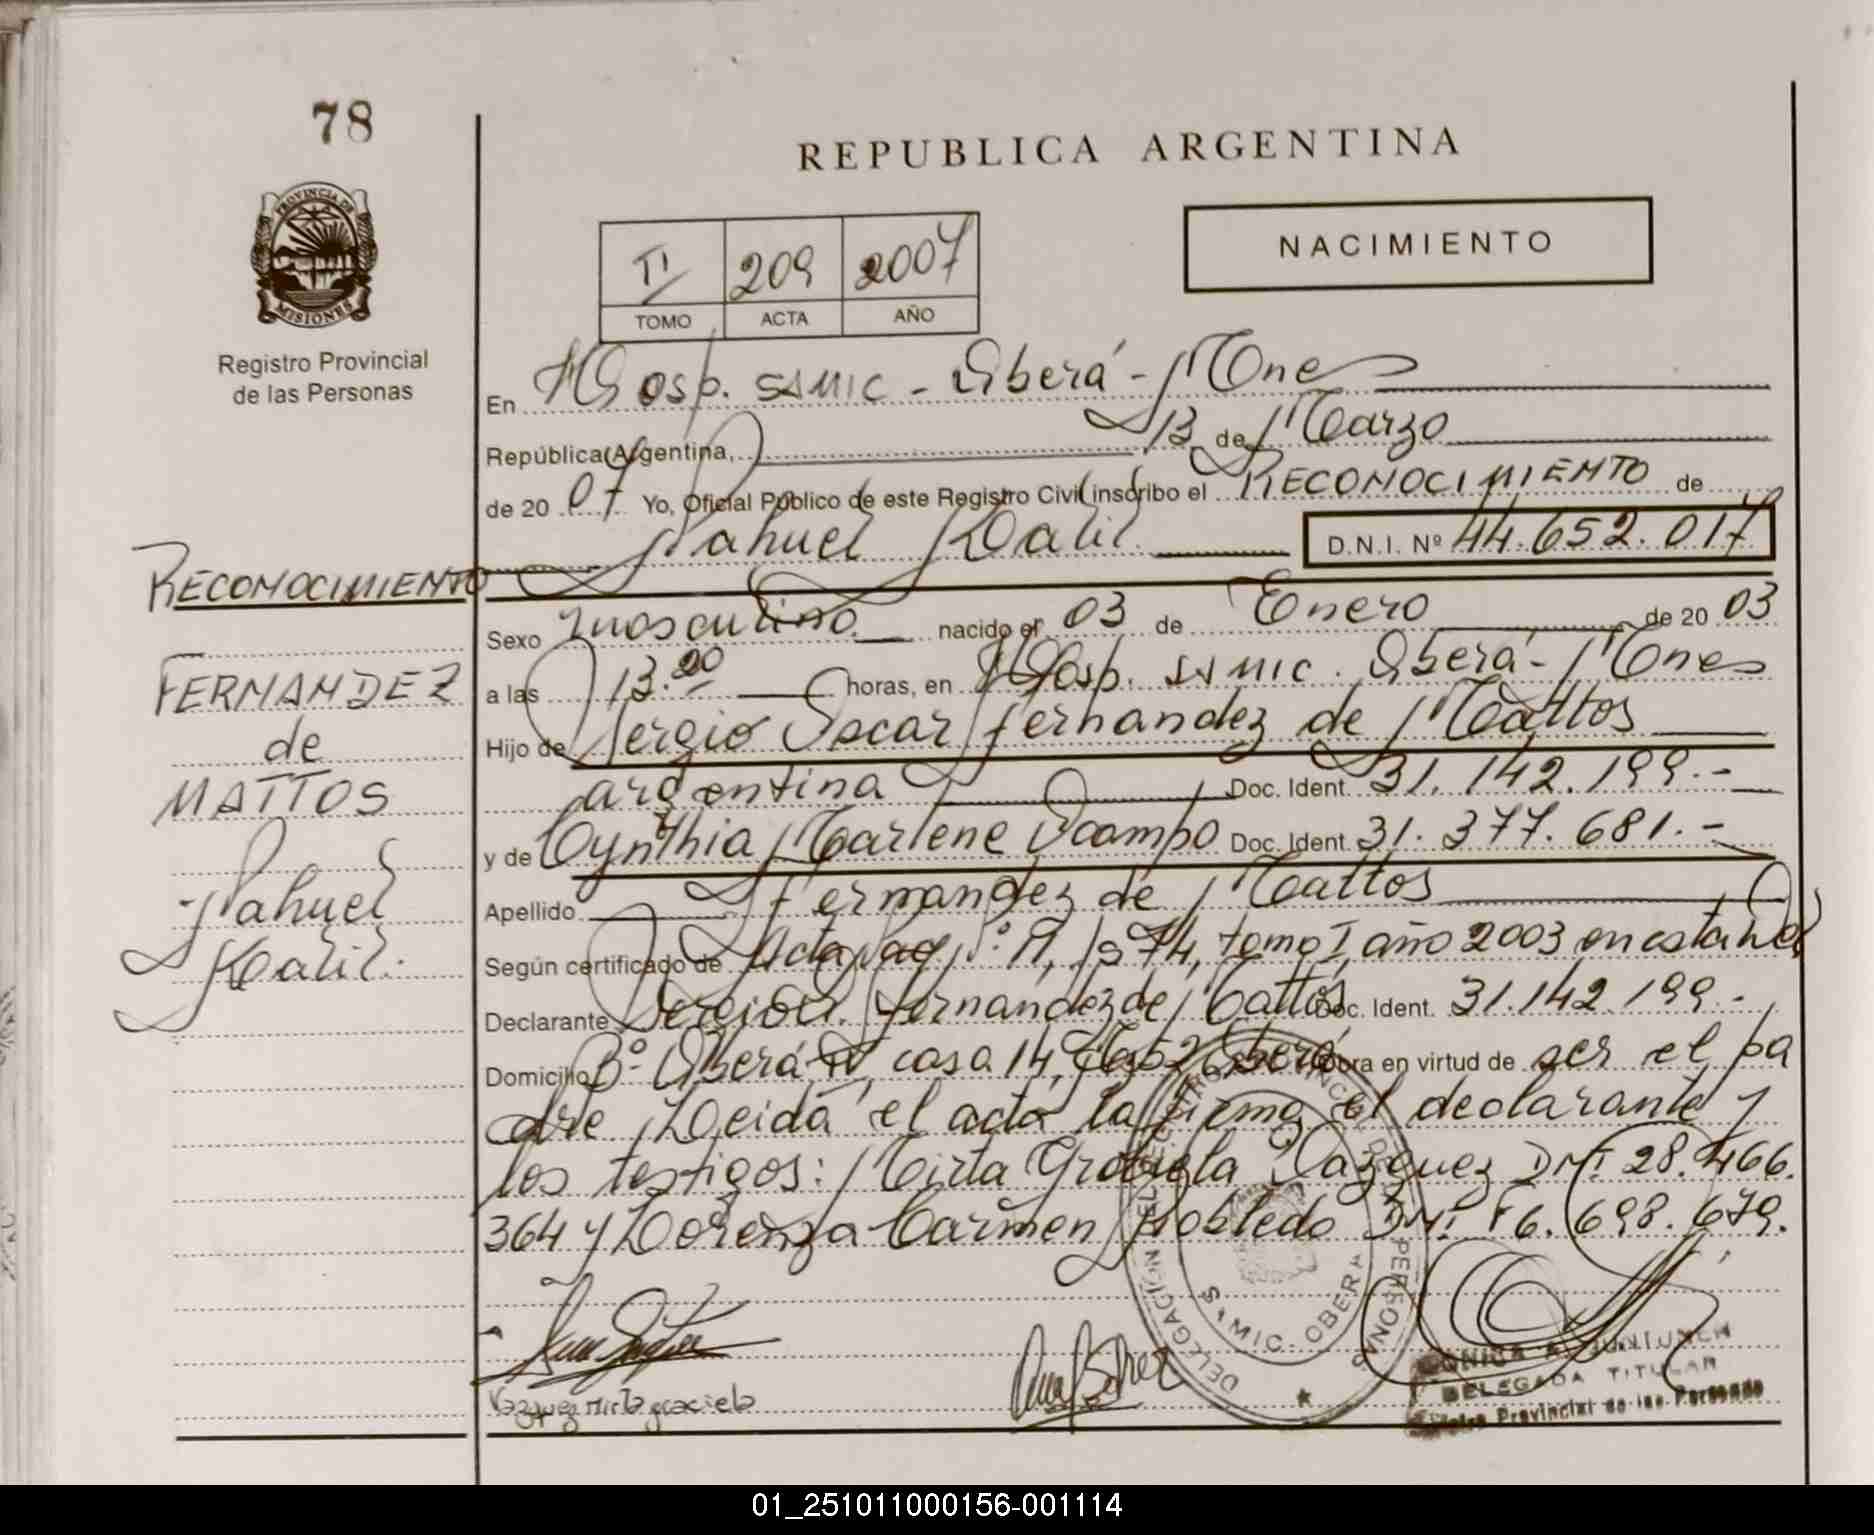 78
REPUBLICA ARGENTINA
PROVINCIA DE
MISIONES
Registro Provincial
de las Personas
NACIMIENTO
TI 209 2007
TOMO ACTA AÑO
En Hosp. SAMIC - Oberá - Mnes
República Argentina, 13 de Marzo
de 20 07 Yo, Oficial Público de este Registro Civil inscribo el RECONOCIMIENTO de
Nahuel Kalil D.N.I. Nº 44.652.017
RECONOCIMIENTO
FERNANDEZ
de
MATTOS
Nahuel
Kalil.
Sexo masculino nacido el 03 de Enero de 20 03
a las 13.20 horas, en Hosp. SAMIC. Oberá - Mnes
Hijo de Sergio Oscar Fernandez de Mattos
argentina Doc. Ident. 31.142.199.-
y de Cynthia Marlene Ocampo Doc. Ident. 31.377.681.-
Apellido Fernandez de Mattos
Según certificado de Acta 74, tomo I, año 2003 en esta Del
Declarante Sergio O. Fernandez de Mattos Doc. Ident. 31.142.199.-
Domicilio Bº Oberá IV casa 14, Oberá Obra en virtud de ser el pa
dre Leida el acta la firma el declarante y
los testigos: Mirta Graciela Vazquez DNI 28.466.
364 y Lorenza Carmen Robledo DNI F6.698.679.
Vazquez mirta graciela
DELEGACIÓN
PROVINCIAL DE
PERSONAS
SAMIC - OBERA
DELEGADA TITULAR
Provincial de las Personas
01_251011000156-001114